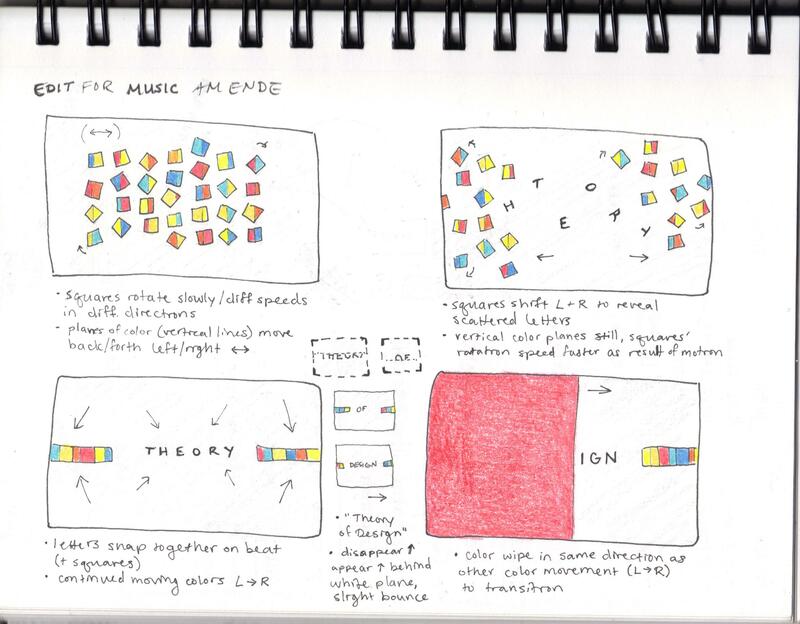 EDIT FOR MUSIC AM ENDE
(↔)
• squares rotate slowly/diff speeds
in diff. directions
• planes of color (vertical lines) move
back/forth left/right ↔
H T O
E R Y
• squares shift L + R to reveal
scattered letters
• vertical color planes still, squares'
rotation speed faster as result of motion
"THEORY"
OF
THEORY
• letters snap together on beat
(+ squares)
• continued moving colors L→R
OF
DESIGN
• "Theory
of Design"
• disappear ↑
appear ↑ behind
white plane,
slight bounce
IGN
• color wipe in same direction as
other color movement (L→R)
to transition